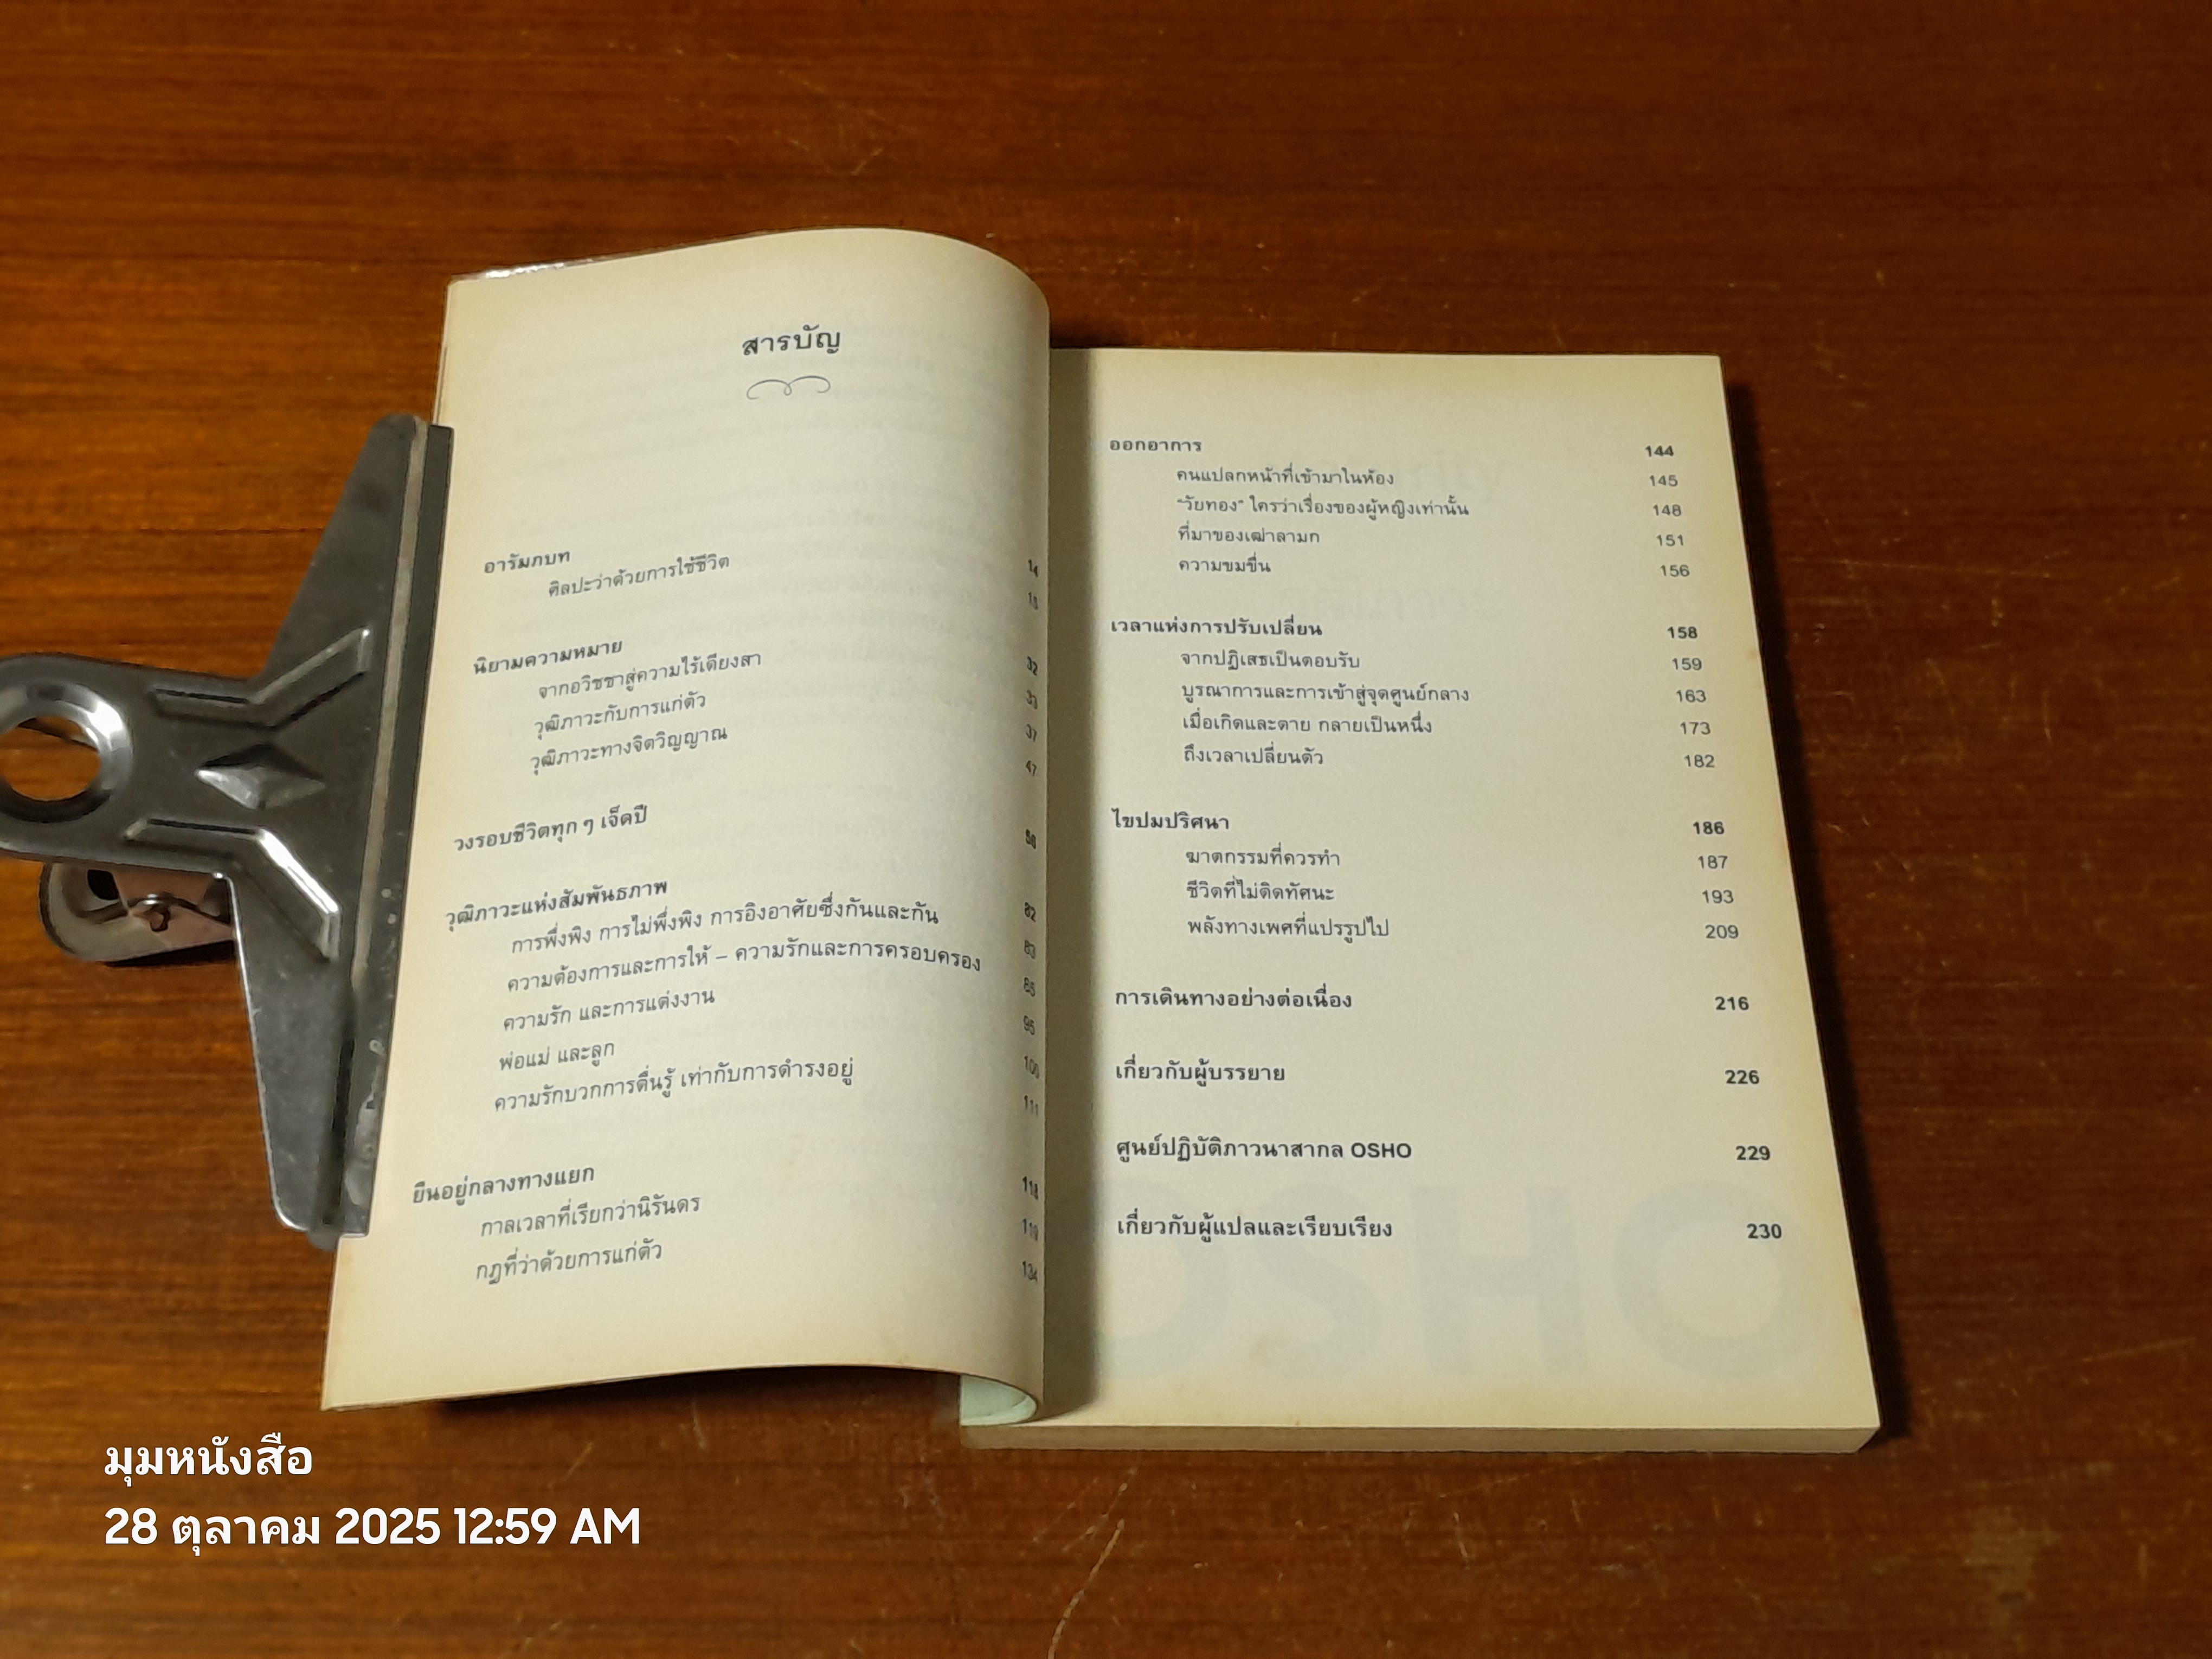 สารบัญ
อารัมภบท 14
ศิลปะว่าด้วยการใช้ชีวิต
นิยามความหมาย 32
จากอวิชชาสู่ความไร้เดียงสา 33
วุฒิภาวะกับการแก่ตัว 37
วุฒิภาวะทางจิตวิญญาณ 47
วงรอบชีวิตทุก ๆ เจ็ดปี
วุฒิภาวะแห่งสัมพันธภาพ 82
การพึ่งพิง การไม่พึ่งพิง การอิงอาศัยซึ่งกันและกัน 83
ความต้องการและการให้ – ความรักและการครอบครอง 85
ความรัก และการแต่งงาน 95
พ่อแม่ และลูก 100
ความรักบวกการตื่นรู้ เท่ากับการดำรงอยู่ 111
ยืนอยู่กลางทางแยก 118
กาลเวลาที่เรียกว่านิรันดร 119
กฎที่ว่าด้วยการแก่ตัว 134
ออกอาการ 144
คนแปลกหน้าที่เข้ามาในห้อง 145
“วัยทอง” ใครว่าเรื่องของผู้หญิงเท่านั้น 148
ที่มาของเฒ่าลามก 151
ความขมขื่น 156
เวลาแห่งการปรับเปลี่ยน 158
จากปฏิเสธเป็นตอบรับ 159
บูรณาการและการเข้าสู่จุดศูนย์กลาง 163
เมื่อเกิดและตาย กลายเป็นหนึ่ง 173
ถึงเวลาเปลี่ยนตัว 182
ไขปมปริศนา 186
ฆาตกรรมที่ควรทำ 187
ชีวิตที่ไม่ติดทัศนะ 193
พลังทางเพศที่แปรรูปไป 209
การเดินทางอย่างต่อเนื่อง 216
เกี่ยวกับผู้บรรยาย 226
ศูนย์ปฏิบัติภาวนาสากล OSHO 229
เกี่ยวกับผู้แปลและเรียบเรียง 230
มุมหนังสือ
28 ตุลาคม 2025 12:59 AM